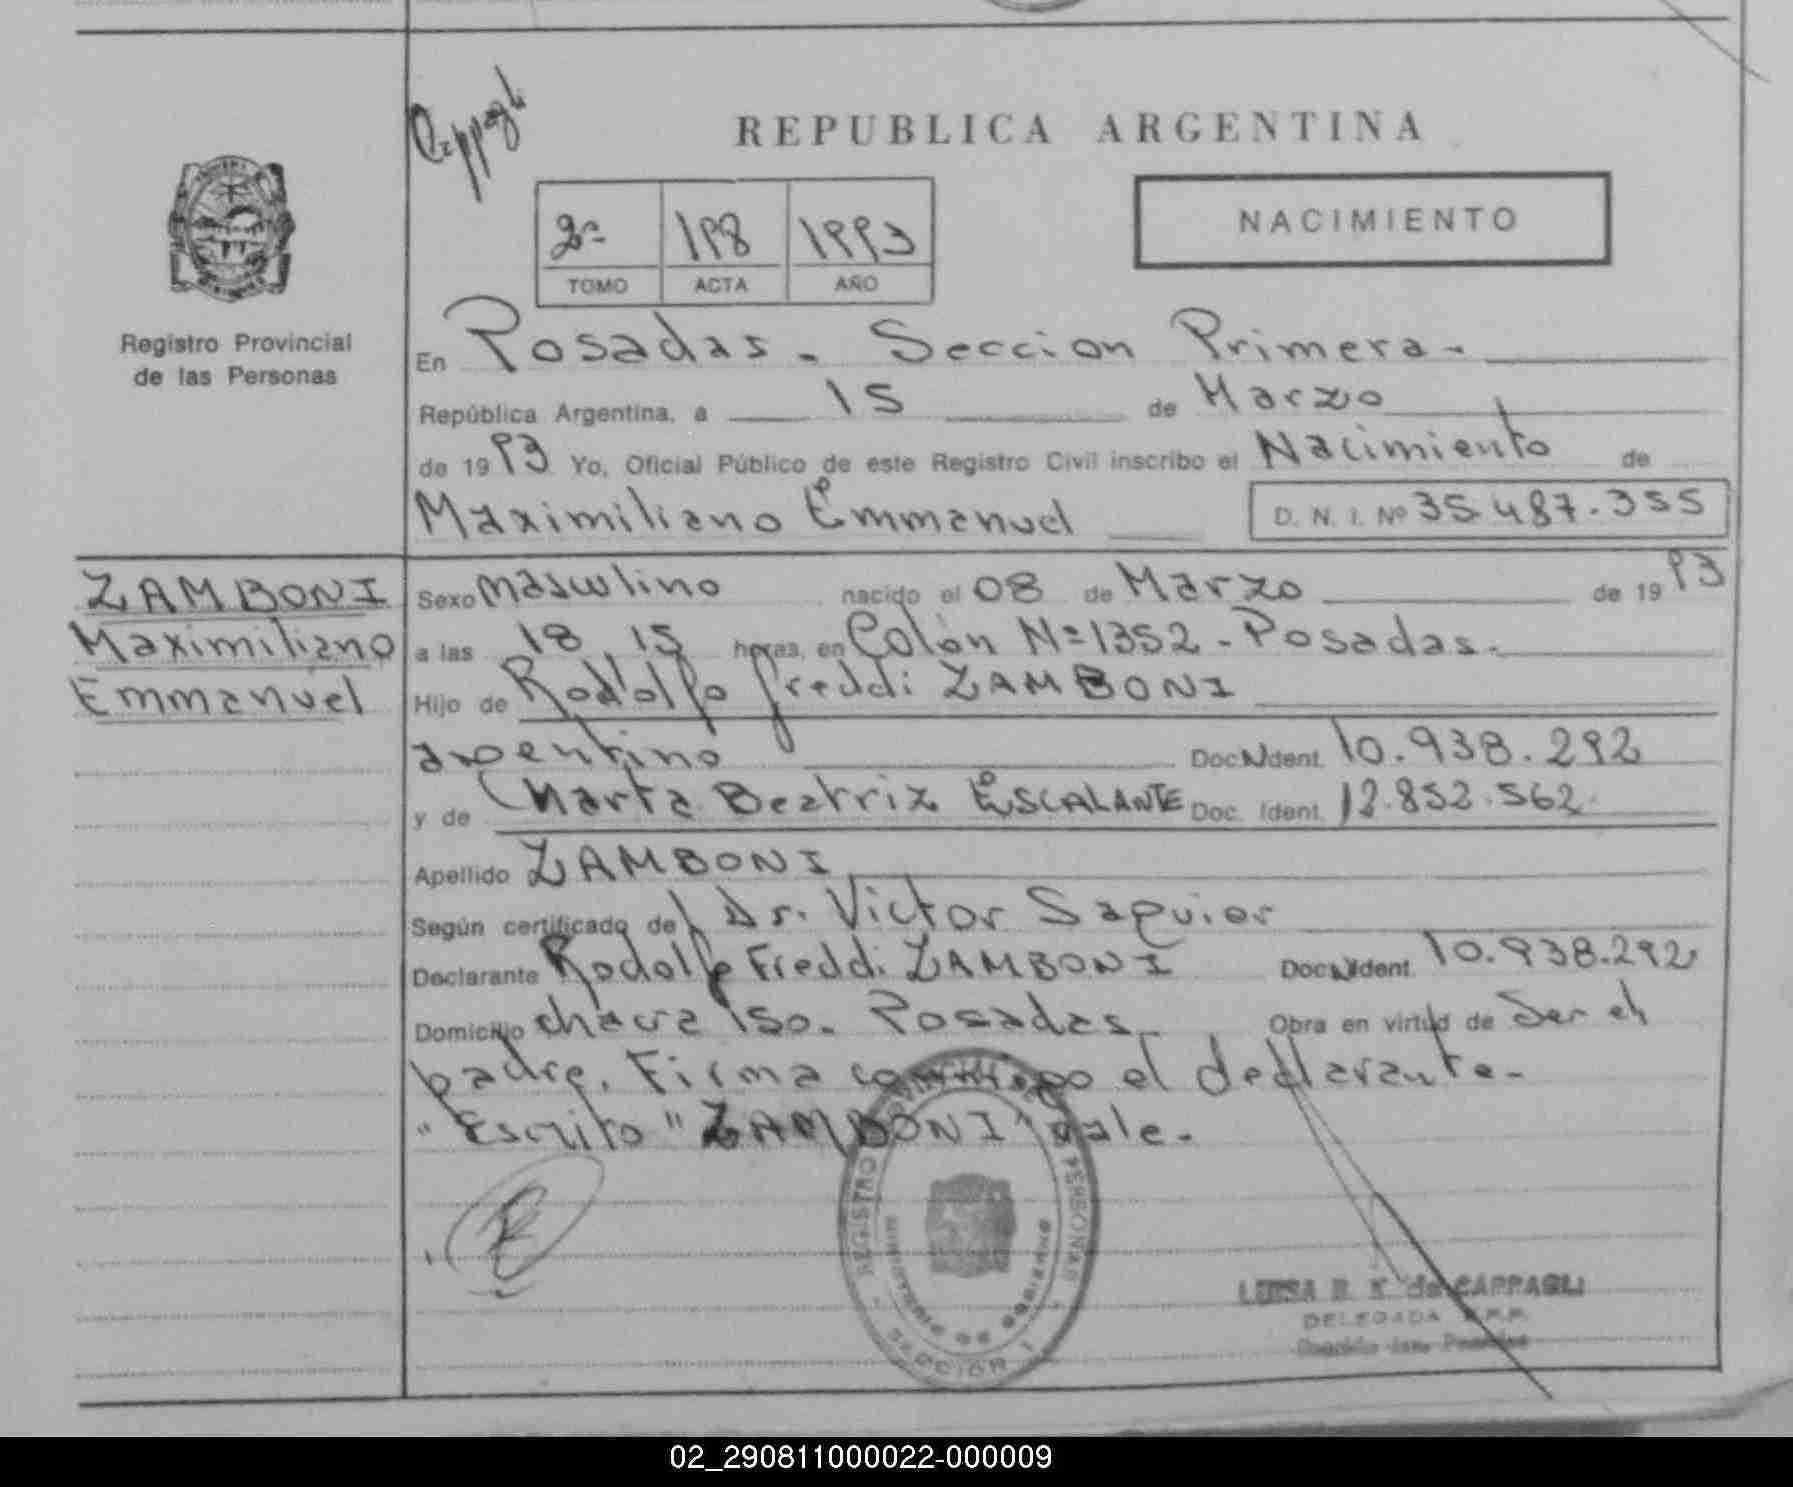 Cappagli
REPUBLICA ARGENTINA
2º 198 1993
TOMO ACTA AÑO
NACIMIENTO
Registro Provincial
de las Personas
En Posadas - Seccion Primera -
República Argentina, a 15 de Marzo
de 1993 Yo, Oficial Público de este Registro Civil inscribo el Nacimiento de
Maximiliano Emmanuel D. N. I. Nº 35.487.355
ZAMBONI
Maximiliano
Emmanuel
Sexo masculino nacido el 08 de Marzo de 1993
a las 18,15 horas, en Colón Nº 1352 - Posadas.
Hijo de Rodolfo freddi ZAMBONI
argentino Doc. Ident. 10.938.292
y de Marta Beatriz ESCALANTE Doc. Ident. 12.852.562.
Apellido ZAMBONI
Según certificado de Dr. Victor Saguier
Declarante Rodolfo Freddi ZAMBONI Doc. Ident. 10.938.292
Domicilio chacra 150. Posadas. Obra en virtud de Ser el
padre. Firma conmigo el declarante.-
"Escrito "ZAMBONI" vale.-
REGISTRO PROVINCIAL DE LAS PERSONAS
MINISTERIO DE GOBIERNO
SECCION 1
LUISA B. K. de CAPPAGLI
DELEGADA R.P.P.
02_290811000022-000009